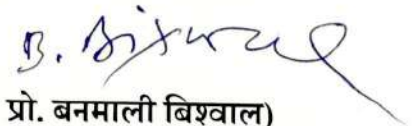 B. Biswal
प्रो. बनमाली बिश्वाल)